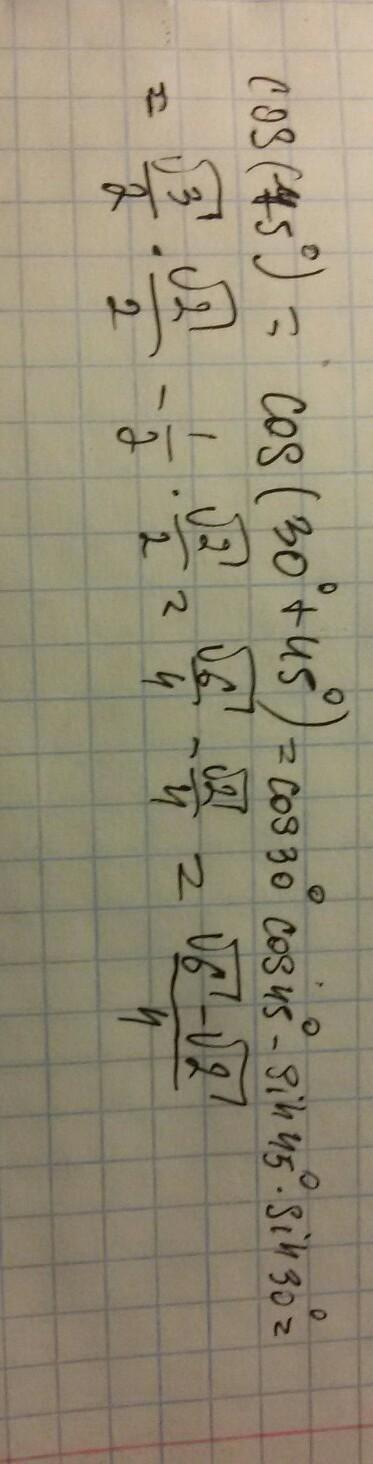 cos(75°) = cos(30° + 45°) = cos30° cos45° - sin45° · sin30° =
= √3/2 · √2/2 - 1/2 · √2/2 = √6/4 - √2/4 = (√6 - √2)/4